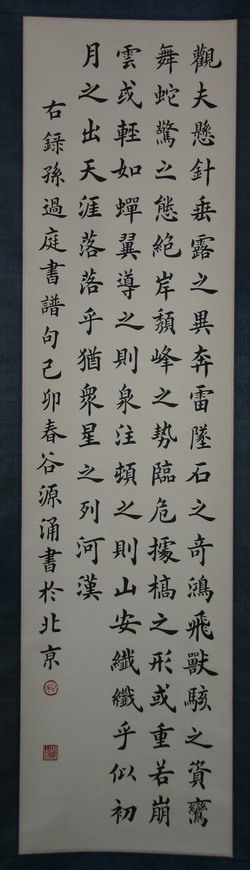 觀夫懸針垂露之異奔雷墜石之奇鴻飛獸駭之資鸞
舞蛇驚之態絕岸頹峰之勢臨危據槁之形或重若崩
雲或輕如蟬翼導之則泉注頓之則山安纖纖乎似初
月之出天涯落落乎猶衆星之列河漢
右録孫過庭書譜句己卯春谷源涌書於北京